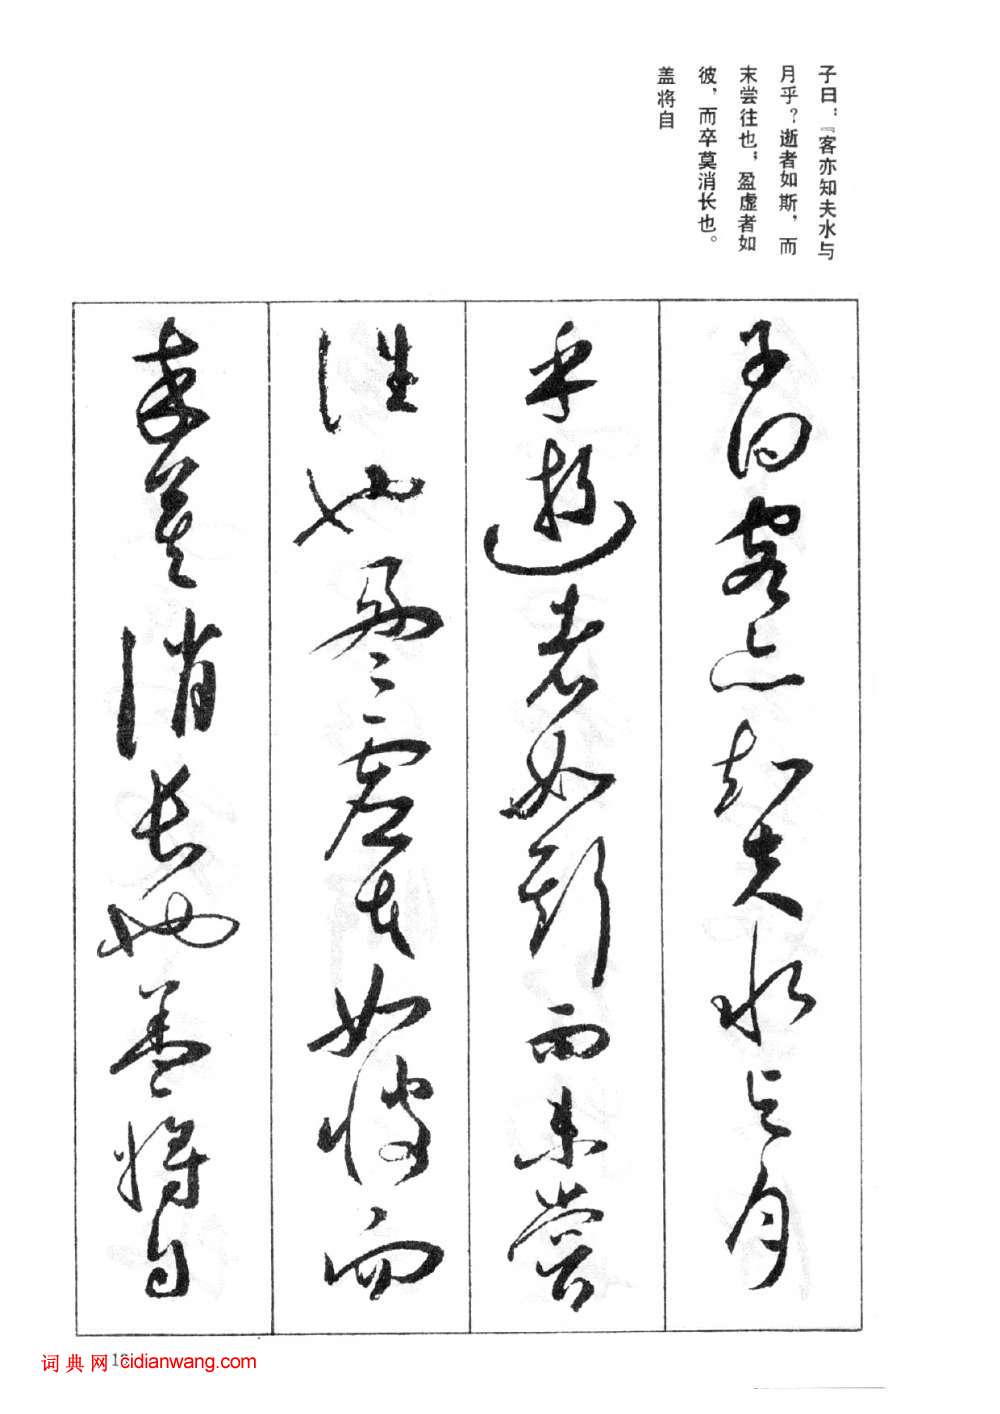 子曰：『客亦知夫水与
月乎？逝者如斯，而
末尝往也；盈虚者如
彼，而卒莫消长也。
盖将自
子曰客亦知夫水与月
乎逝者如斯而未尝
往也盈虚者如彼而
卒莫消长也盖将自
词典网 cidianwang.com